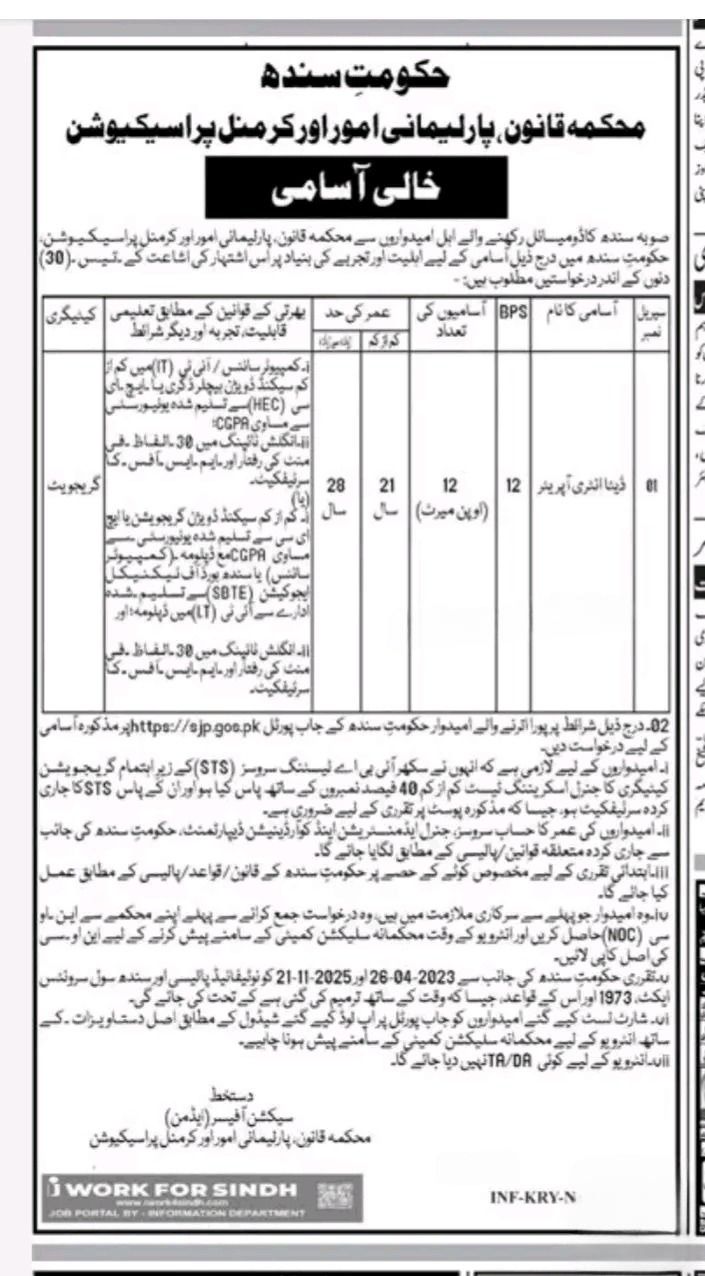 حکومتِ سندھ
محکمہ قانون، پارلیمانی امور اور کرمنل پراسیکیوشن
خالی آسامی
صوبہ سندھ کا ڈومیسائل رکھنے والے اہل امیدواروں سے محکمہ قانون، پارلیمانی امور اور کرمنل پراسیکیوشن،
حکومتِ سندھ میں درج ذیل آسامی کے لیے اہلیت اور تجربے کی بنیاد پر اس اشتہار کی اشاعت کے۔تیس۔(30)
دنوں کے اندر درخواستیں مطلوب ہیں:-
سیریل نمبر
آسامی کا نام
BPS
آسامیوں کی تعداد
عمر کی حد
کم از کم
زیادہ سے زیادہ
بھرتی کے قوانین کے مطابق تعلیمی
قابلیت، تجربہ اور دیگر شرائط
کیٹیگری
01
ڈیٹا انٹری آپریٹر
12
12
(اوپن میرٹ)
21
سال
28
سال
i۔کمپیوٹر سائنس/آئی ٹی (IT)میں کم از
کم سیکنڈ ڈویژن بیچلر ڈگری یا۔ایچ۔ای
سی (HEC)سے تسلیم شدہ یونیورسٹی
سے مساوی CGPA؛
ii۔انگلش ٹائپنگ میں 30۔الفاظ۔فی
منٹ کی رفتار اور۔ایم۔ایس۔آفس۔کا
سرٹیفکیٹ۔
(یا)
i۔کم از کم سیکنڈ ڈویژن گریجویشن یا ایچ
ای سی سے تسلیم شدہ یونیورسٹی۔سے
مساوی CGPAمع ڈپلومہ۔(کمپیوٹر
سائنس) یا سندھ بورڈ آف ٹیکنیکل
ایجوکیشن (SBTE)سے تسلیم۔شدہ
ادارے سے آئی ٹی (I.T)میں ڈپلومہ؛ اور
ii۔انگلش ٹائپنگ میں 30۔الفاظ۔فی
منٹ کی رفتار اور۔ایم۔ایس۔آفس۔کا
سرٹیفکیٹ۔
گریجویٹ
02۔درج ذیل شرائط پر پورا اترنے والے امیدوار حکومتِ سندھ کے جاب پورٹل https://sjp.gos.pkپر مذکورہ آسامی
کے لیے درخواست دیں۔
i۔امیدواروں کے لیے لازمی ہے کہ انہوں نے سکھر آئی بی اے ٹیسٹنگ سروسز (STS)کے زیرِ اہتمام گریجویشن
کیٹیگری کا جنرل اسکریننگ ٹیسٹ کم از کم 40 فیصد نمبروں کے ساتھ پاس کیا ہو اور ان کے پاس STSکا جاری
کردہ سرٹیفکیٹ ہو، جیسا کہ مذکورہ پوسٹ پر تقرری کے لیے ضروری ہے۔
ii۔امیدواروں کی عمر کا حساب سروسز، جنرل ایڈمنسٹریشن اینڈ کوآرڈینیشن ڈیپارٹمنٹ، حکومتِ سندھ کی جانب
سے جاری کردہ متعلقہ قوانین/پالیسی کے مطابق لگایا جائے گا۔
iii۔ابتدائی تقرری کے لیے مخصوص کوٹے کے حصے پر حکومتِ سندھ کے قانون/قواعد/پالیسی کے مطابق عمل
کیا جائے گا۔
iv۔وہ امیدوار جو پہلے سے سرکاری ملازمت میں ہیں، وہ درخواست جمع کرانے سے پہلے اپنے محکمے سے این۔او
سی (NOC)حاصل کریں اور انٹرویو کے وقت محکمانہ سلیکشن کمیٹی کے سامنے پیش کرنے کے لیے این او۔سی
کی اصل کاپی لائیں۔
v۔تقرری حکومتِ سندھ کی جانب سے 26-04-2023 اور 21-11-2025 کو نوٹیفائیڈ پالیسی اور سندھ سول سرونٹس
ایکٹ، 1973 اور اس کے قواعد، جیسا کہ وقت کے ساتھ ترمیم کی گئی ہے کے تحت کی جائے گی۔
vi۔شارٹ لسٹ کیے گئے امیدواروں کو جاب پورٹل پر اپ لوڈ کیے گئے شیڈول کے مطابق اصل دستاویزات۔کے
ساتھ انٹرویو کے لیے محکمانہ سلیکشن کمیٹی کے سامنے پیش ہونا چاہیے۔
vii۔انٹرویو کے لیے کوئی TA/DAنہیں دیا جائے گا۔
دستخط
سیکشن آفیسر (ایڈمن)
محکمہ قانون، پارلیمانی امور اور کرمنل پراسیکیوشن
i WORK FOR SINDH
www.iwork4sindh.com
JOB PORTAL BY - INFORMATION DEPARTMENT
INF-KRY-N